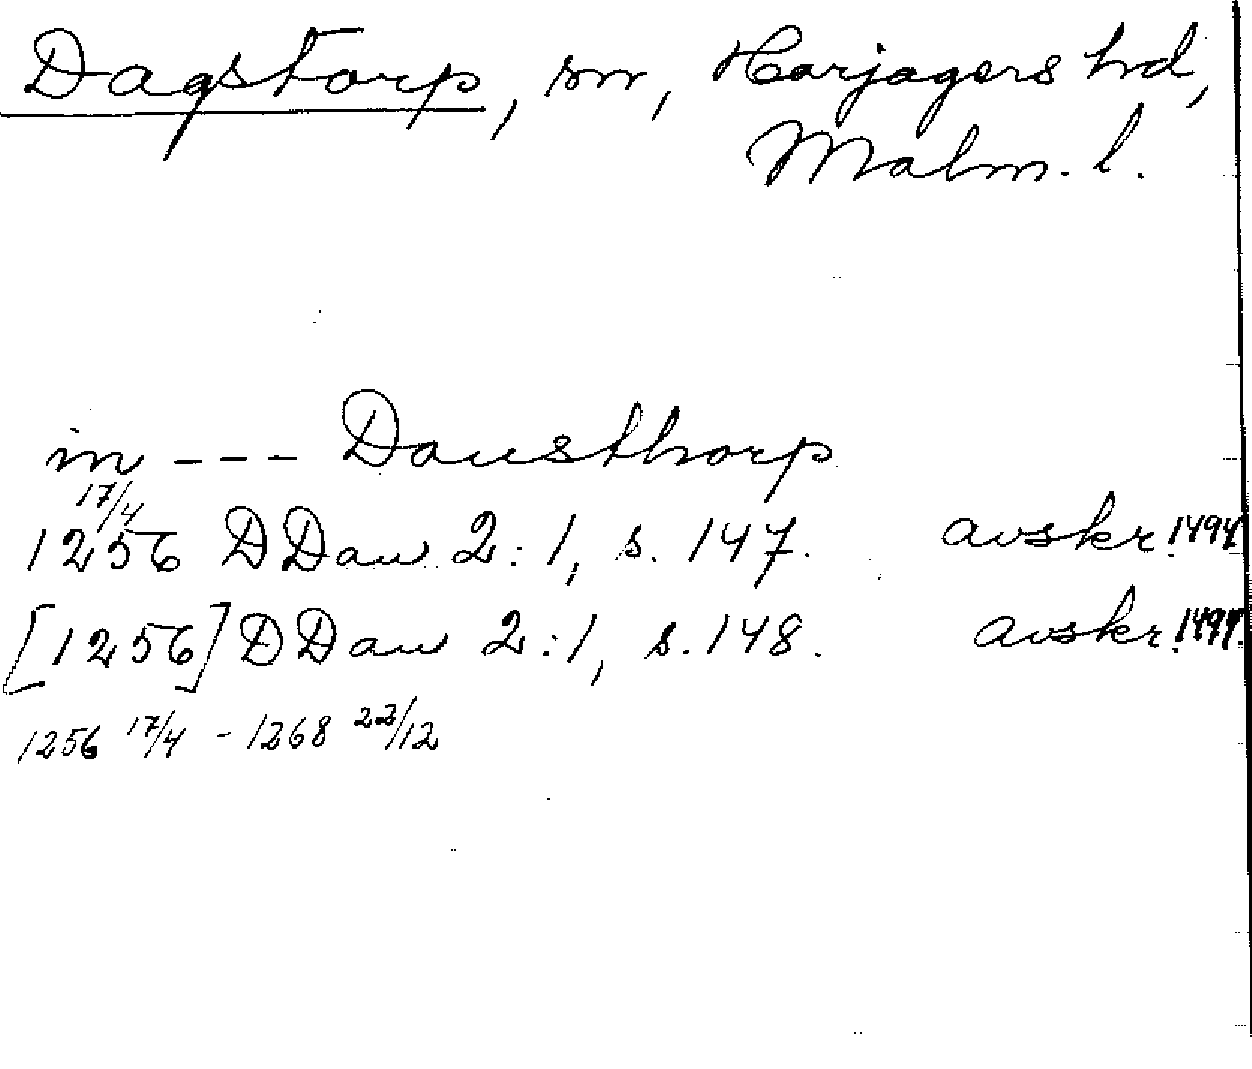 Dagstorp, sn, Harjagers hd,
Malm. l.
in --- Dausthorp
17/4
1256 DDan 2:1, s. 147. avskr. 1494
[1256] DDan 2:1, s. 148. avskr. 1494.
1256 17/4 - 1268 22/12